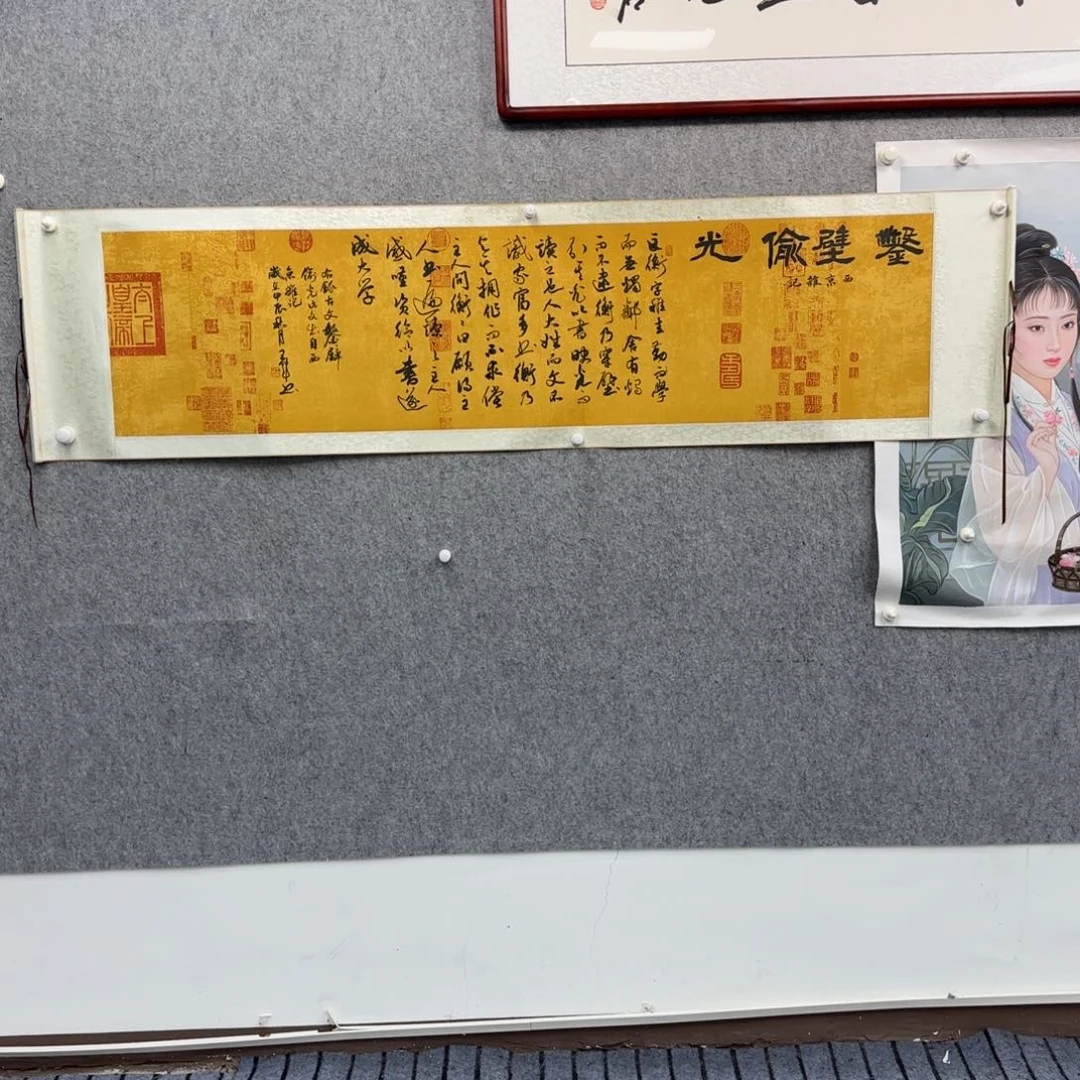 鑿壁偷光
西京雜記
匡衡字雅圭勤而學
而無燭鄰舍有燭
而不逮衡乃穿壁
引其光以書映光而
讀之邑人大姓而文不
識家富多書衡乃
與其傭作而不求償
主人問衡衡曰願得主
人書遍讀之主人
感嘆資給以書遂
成大學
右錄古文鑿壁
偷光出自西
京雜記
歲在甲辰秋月